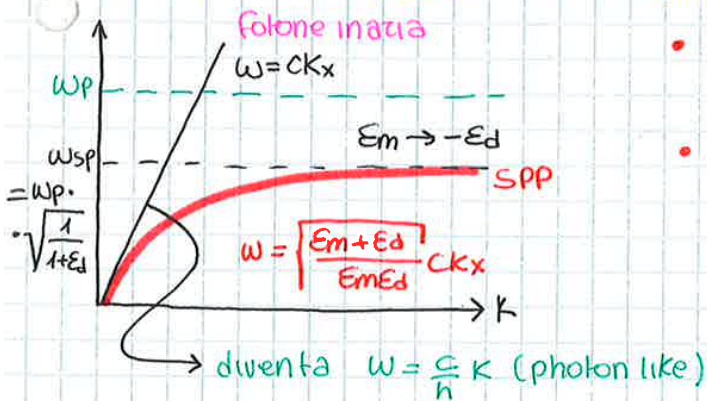 fotone in aria
ω = CKx
ωp
εm → -εd
ωsp
= ωp·
·√(1/(1+εd))
SPP
ω = √((εm + εd)/(εmεd)) CKx
K
diventa ω = c/n K (photon like)